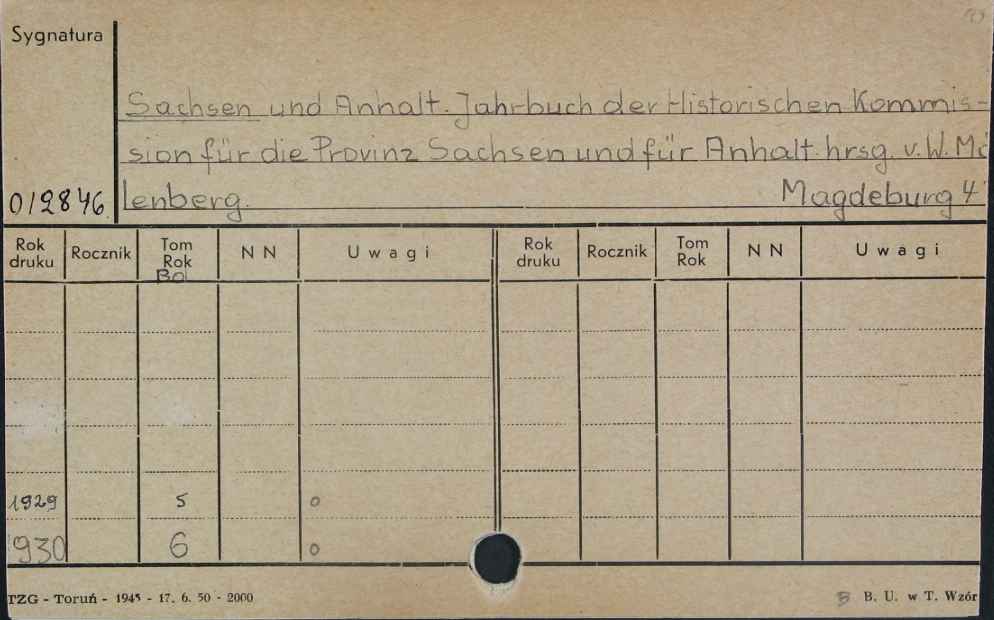 Sygnatura
Sachsen und Anhalt. Jahrbuch der Historischen Kommis-
sion für die Provinz Sachsen und für Anhalt. hrsg. v. W. Mö
012846 lenberg. Magdeburg 4°
Rok druku Rocznik Tom Rok Bd N N Uwagi Rok druku Rocznik Tom Rok N N Uwagi
1929 5 o
930 6 o
TZG - Toruń - 1945 - 17. 6. 50 - 2000 B. U. w T. Wzór